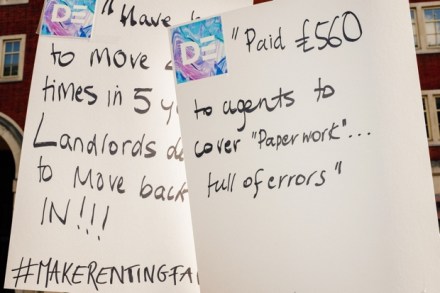 DE
"Have h
to move
times in 5 y
Landlords de
to Move back
IN!!!
#MAKERENTINGFA
DE
"Paid £560
to agents to
cover "Paperwork"...
full of errors"